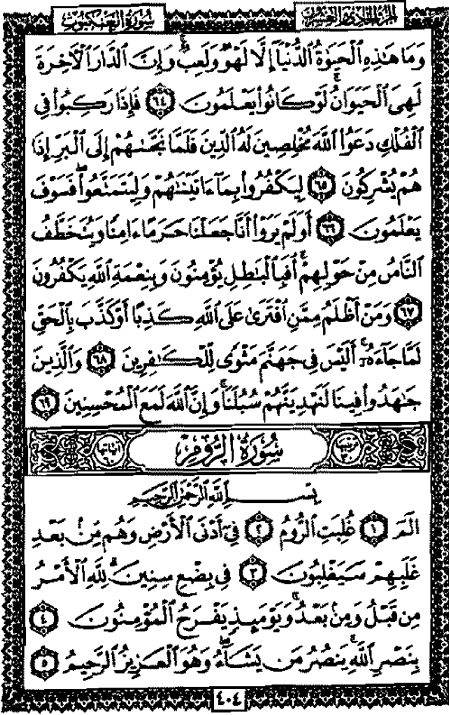 الجزء الحادي والعشرون
سورة العنكبوت
وَمَا هَٰذِهِ ٱلْحَيَوٰةُ ٱلدُّنْيَآ إِلَّا لَهْوٌ وَلَعِبٌ ۚ وَإِنَّ ٱلدَّارَ ٱلْءَاخِرَةَ
لَهِىَ ٱلْحَيَوَانُ ۚ لَوْ كَانُوا۟ يَعْلَمُونَ ٦٤ فَإِذَا رَكِبُوا۟ فِى
ٱلْفُلْكِ دَعَوُا۟ ٱللَّهَ مُخْلِصِينَ لَهُ ٱلدِّينَ فَلَمَّا نَجَّىٰهُمْ إِلَى ٱلْبَرِّ إِذَا
هُمْ يُشْرِكُونَ ٦٥ لِيَكْفُرُوا۟ بِمَآ ءَاتَيْنَٰهُمْ وَلِيَتَمَتَّعُوا۟ ۖ فَسَوْفَ
يَعْلَمُونَ ٦٦ أَوَلَمْ يَرَوْا۟ أَنَّا جَعَلْنَا حَرَمًا ءَامِنًا وَيُتَخَطَّفُ
ٱلنَّاسُ مِنْ حَوْلِهِمْ ۚ أَفَبِٱلْبَٰطِلِ يُؤْمِنُونَ وَبِنِعْمَةِ ٱللَّهِ يَكْفُرُونَ
٦٧ وَمَنْ أَظْلَمُ مِمَّنِ ٱفْتَرَىٰ عَلَى ٱللَّهِ كَذِبًا أَوْ كَذَّبَ بِٱلْحَقِّ
لَمَّا جَآءَهُۥٓ ۚ أَلَيْسَ فِى جَهَنَّمَ مَثْوًى لِّلْكَٰفِرِينَ ٦٨ وَٱلَّذِينَ
جَٰهَدُوا۟ فِينَا لَنَهْدِيَنَّهُمْ سُبُلَنَا ۚ وَإِنَّ ٱللَّهَ لَمَعَ ٱلْمُحْسِنِينَ ٦٩
سُورَةُ الرُّومِ
بِسْمِ ٱللَّهِ ٱلرَّحْمَٰنِ ٱلرَّحِيمِ
الٓمٓ ١ غُلِبَتِ ٱلرُّومُ ٢ فِىٓ أَدْنَى ٱلْأَرْضِ وَهُم مِّنۢ بَعْدِ
غَلَبِهِمْ سَيَغْلِبُونَ ٣ فِى بِضْعِ سِنِينَ ۗ لِلَّهِ ٱلْأَمْرُ
مِن قَبْلُ وَمِنۢ بَعْدُ ۚ وَيَوْمَئِذٍ يَفْرَحُ ٱلْمُؤْمِنُونَ ٤
بِنَصْرِ ٱللَّهِ ۚ يَنصُرُ مَن يَشَآءُ ۖ وَهُوَ ٱلْعَزِيزُ ٱلرَّحِيمُ ٥
٤٠٤